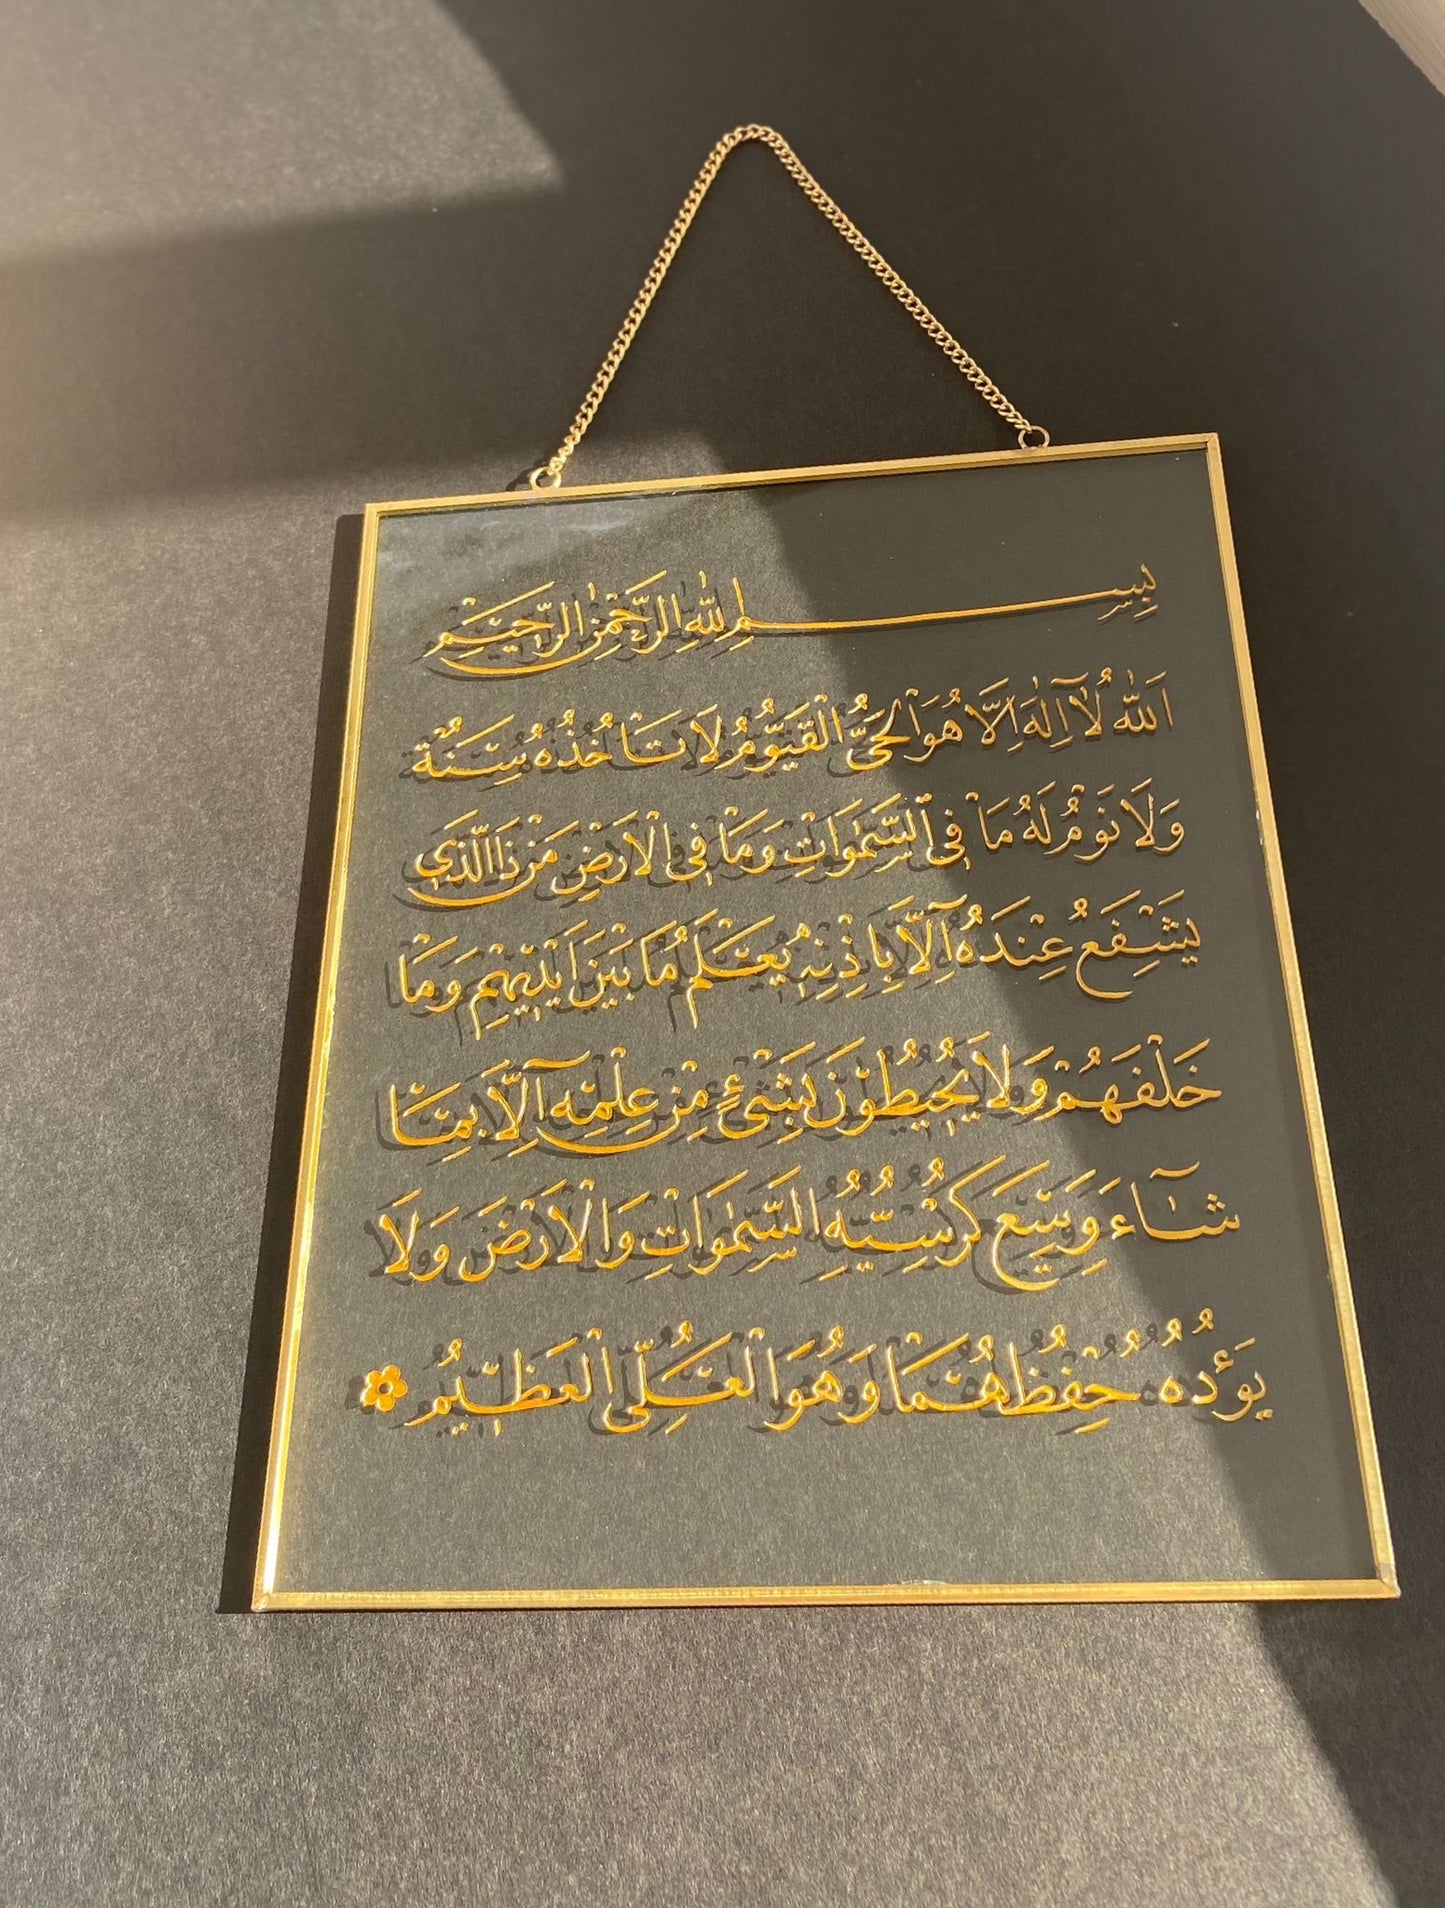 بِسْمِ اللّٰهِ الرَّحْمٰنِ الرَّحِيْمِ
اَللّٰهُ لَآ اِلٰهَ اِلَّا هُوَ الْحَىُّ الْقَيُّوْمُ لَا تَاْخُذُهٗ سِنَةٌ
وَلَا نَوْمٌ لَهٗ مَا فِى السَّمٰوَاتِ وَمَا فِى الْاَرْضِ مَنْ ذَا الَّذٖى
يَشْفَعُ عِنْدَهٗٓ اِلَّا بِاِذْنِهٖ يَعْلَمُ مَا بَيْنَ اَيْدٖيهِمْ وَمَا
خَلْفَهُمْ وَلَا يُحٖيطُوْنَ بِشَىْءٍ مِنْ عِلْمِهٖٓ اِلَّا بِمَا
شَٓاءَ وَسِعَ كُرْسِيُّهُ السَّمٰوَاتِ وَالْاَرْضَ وَلَا
يَؤُدُهٗ حِفْظُهُمَا وَهُوَ الْعَلِىُّ الْعَظٖيمُ